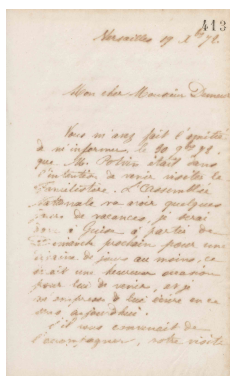 413
Versailles 19 Xbre 72.
Mon cher Monsieur
Vous m'avez fait l'amitié
de m'informer, le 30 9bre 72,
que M. était dans
l'intention de venir visiter le
Familistère. L'Assemblée
Nationale va avoir quelques
jours de vacances, je serai
donc à Guise à partir de
Dimanche prochain pour une
de jours au moins, ce
serait une heureuse occasion
pour lui de venir, et je
m'empresse de lui écrire en ce
sens aujourd'hui.
S'il vous convenait de
l'accompagner, votre visite